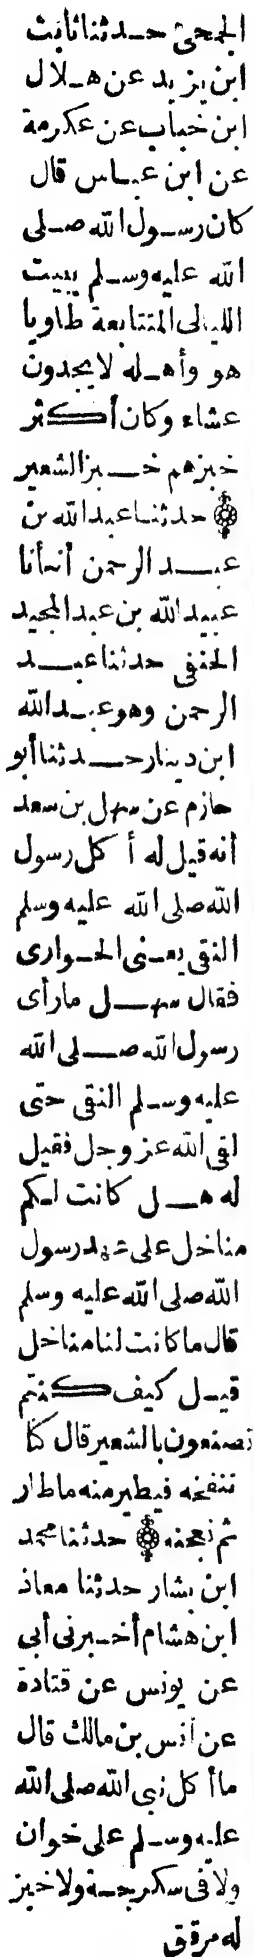 الجمحى حدثنا ثابت
ابن يزيد عن هلال
ابن خباب عن عكرمة
عن ابن عباس قال
كان رسول الله صلى
الله عليه وسلم يبيت
الليالى المتتابعة طاويا
هو وأهله لا يجدون
عشاء وكان أكثر
خبزهم خبز الشعير
۞ حدثنا عبد الله بن
عبد الرحمن أنبأنا
عبيد الله بن عبد المجيد
الحنفى حدثنا عبد
الرحمن وهو عبد الله
ابن دينار حدثنا أبو
حازم عن سهل بن سعد
أنه قيل له أ كل رسول
الله صلى الله عليه وسلم
النقى يعنى الحوارى
فقال سهل مارأى
رسول الله صلى الله
عليه وسلم النقى حتى
لقى الله عز وجل فقيل
له هل كانت لكم
مناخل على عهد رسول
الله صلى الله عليه وسلم
قال ما كانت لنا مناخل
قيل كيف كنتم
تصنعون بالشعير قال كنا
ننفخه فيطير منه ماطار
ثم نعجنه ۞ حدثنا محمد
ابن بشار حدثنا معاذ
ابن هشام أخبرنى أبى
عن يونس عن قتادة
عن أنس بن مالك قال
ما أكل نبى الله صلى الله
عليه وسلم على خوان
ولا فى سكرجة ولا خبز
له مرقق